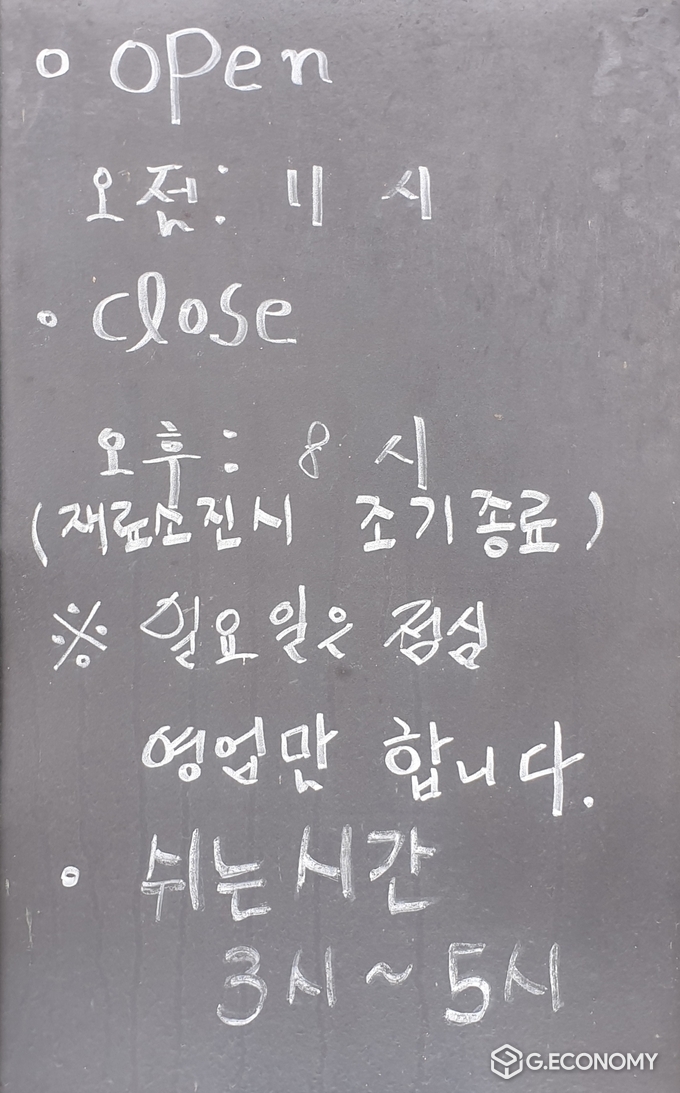 • open
오전: 11 시
• close
오후: 8 시
(재료소진시 조기종료)
※ 일요일은 점심
영업만 합니다.
• 쉬는 시간
3시 ~ 5시
G.ECONOMY